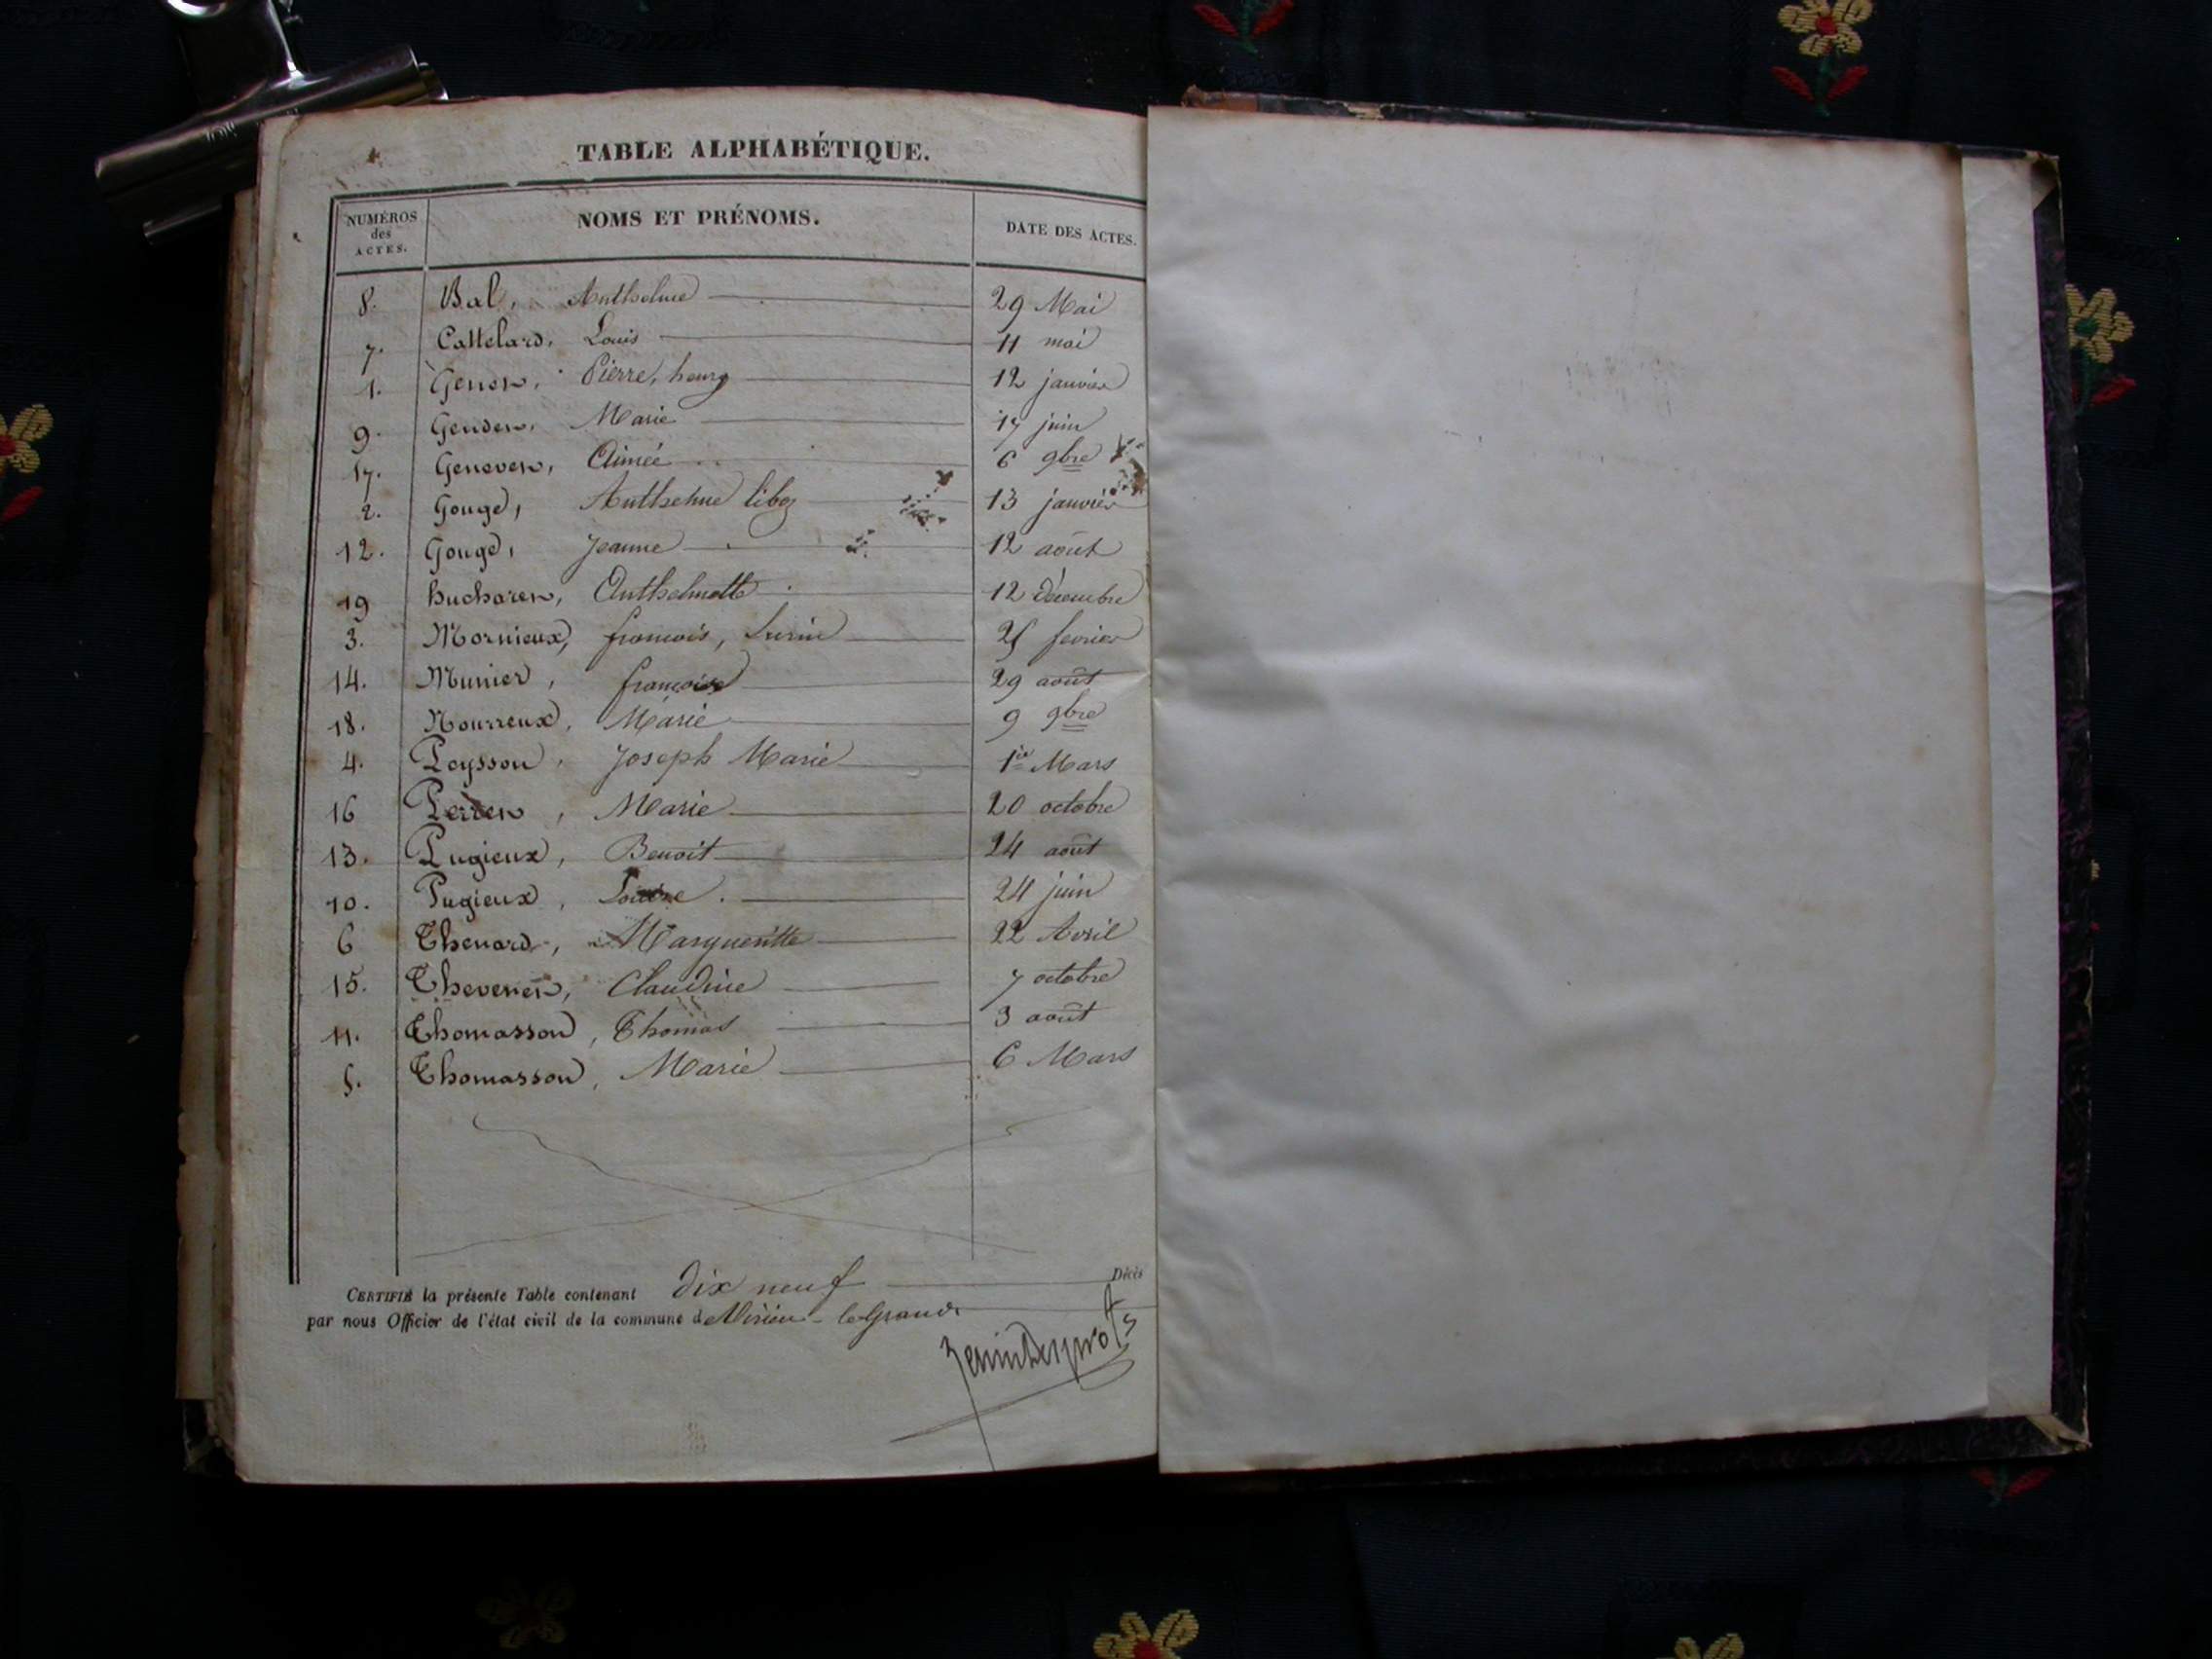 TABLE ALPHABÉTIQUE.
NUMÉROS des ACTES. NOMS ET PRÉNOMS. DATE DES ACTES.
8. Bal, Anthelme 29 Mai
7. Cattelard, Louis 11 mai
1. Pierre, henry 12 janvier
9. Marie 17 juin
17. Aimée 6 9bre
2. Gouge, Anthelme 13 janvier
12. Gouge, Jeanne 12 août
19 Anthelmette 12 Décembre
3. Mornieux, françois, fevrier
14. Munier, 29 août
18. Nourreux, Marie 9 9bre
4. Peysson, Joseph Marie 1er Mars
16 Marie 20 octobre
13. Pugieux, Benoit 24 août
10. Pugieux, 24 juin
6 Thenard, Margueritte 22 Avril
15. Claudine 7 octobre
11. Thomasson, Thomas 3 août
5. Thomasson, Marie 6 Mars
CERTIFIÉ la présente Table contenant dix neuf Décès
par nous Officier de l'état civil de la commune de Virieu-le-Grand